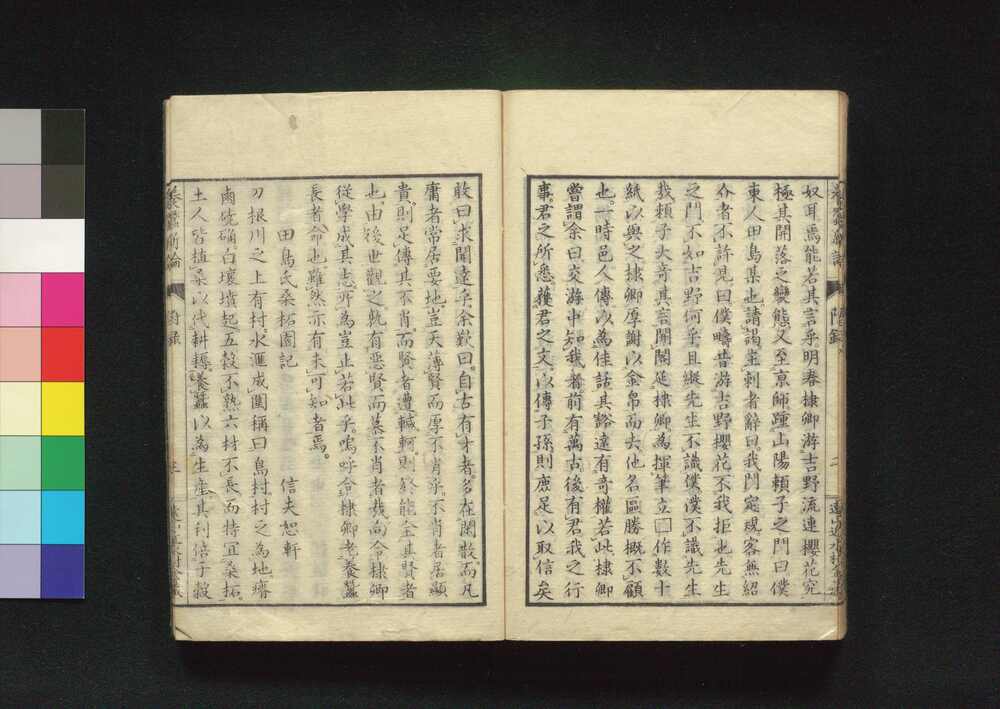 奴耳焉能若其言乎明春棣卿游吉野流連櫻花究
極其開落之變態又至京師踵山陽頼子之門曰僕
東人田島某也請謁主刺者辭曰我門定規客無紹
介者不許見曰僕疇昔游吉野櫻花不我拒也先生
之門不如吉野何乎且縱先生不識僕僕不識先生
哉頼子大奇其言開閤延棣卿為揮筆立□作數十
紙以與之棣卿厚謝以金帛而去他名區勝概不顧
也一時邑人傳以為佳話其豁達有奇權若此棣卿
嘗謂余曰交游中知我者前有萬古後有君我之行
事君之所悉獲君之文以傳子孫則庶足以取信矣
敢曰求聞達乎余歎曰自古有才者多在閑散而凡
庸者常居要地豈天薄賢而厚不肖乎不肖者居顯
貴則足傳其不肖而賢者遭轗軻則終能全其賢
也由後世觀之孰有惡賢而慕不肖者哉向令棣卿
從學成其志所為豈止若此乎嗚呼令棣卿老養蠶
長者命也雖然亦有未可知者焉
田島氏桑柘園記
信夫恕軒
刀根川之上有村水滙成圍稱曰島村村之為地瘠
鹵磽确白壤墳起五穀不熟六材不長而特宜桑柘
土人皆植桑以代耕耨養蠶以為生產其利倍于穀
養蠶新論
附錄